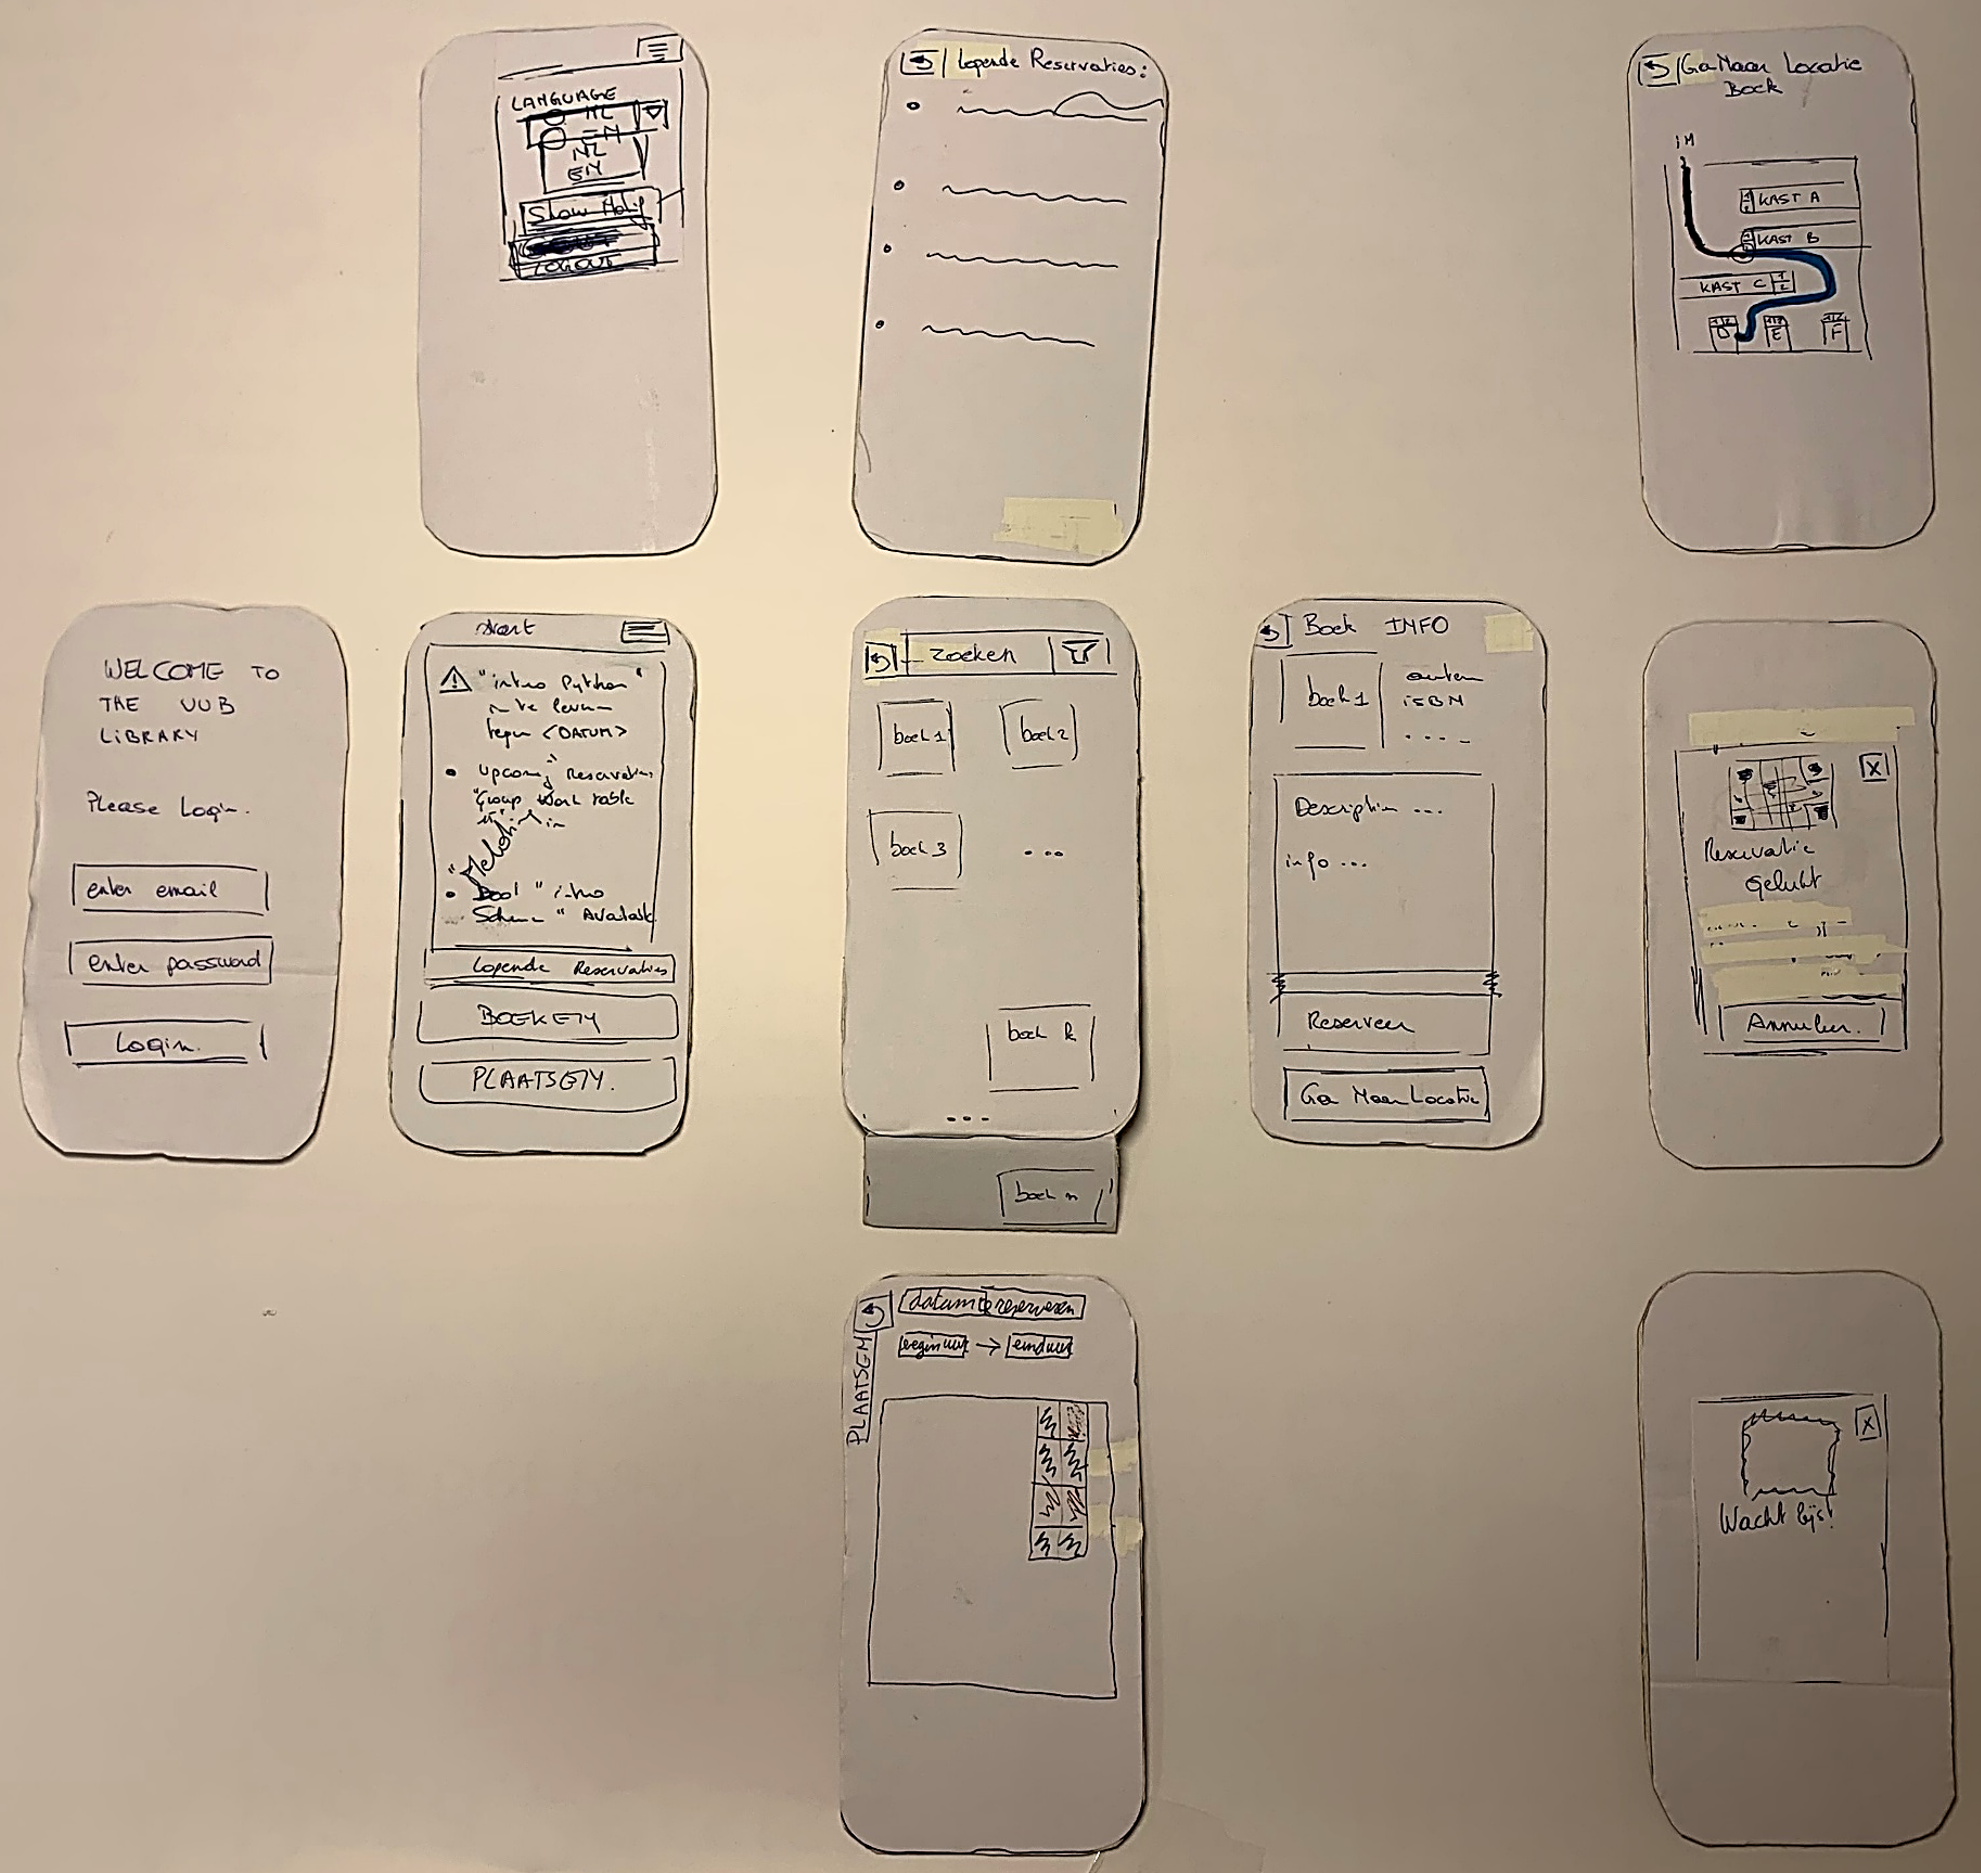 LANGUAGE
NL
EN
NL
EN
Show Notif
LOGOUT
Lopende Reservaties:
Ga Naar Locatie
Boek
IN
KAST A
KAST B
KAST C 1 2
D E F
WELCOME TO
THE VUB
LIBRARY
Please Login.
enter email
enter password
Login.
start
"intro Python"
<DATUM>
Upcoming Reservation
"Group Work table
Boek "intro
Scheme" Available
Lopende Reservaties
BOEKEN
PLAATSEN.
zoeken
boek 1
boek 2
boek 3
...
boek k
...
boek n
Boek INFO
boek 1
auteur
ISBN
....
Description ...
info ...
Reserveer
Ga Naar Locatie
X
Reservatie
gelukt
Annuleer.
PLAATSEN
datum te reserveren
beginuur → einduur
X
Wachtlijst